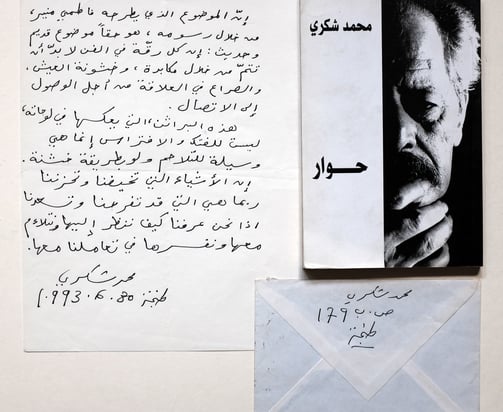 إنّ الموضوع الذي يطرحه فاطمي منير،
من خلال رسومه، هو حقاً موضوع قديم
وحديث: إن كل رقّة في الفن لا بدّ أن
تتمّ من خلال مكابدة، وخشونة العيش.
والصراع في العلاقة من أجل الوصول
إلى الاتصال.
هذه البراثن، التي يعكسها في لوحاته،
ليست للفتك والافتراس إنما هي
وسيلة للتلاحم ولو بطريقة خشنة.
إن الأشياء التي تخيفنا وتحزننا
ربما هي التي قد تفرحنا وتسعدنا
اذا نحن عرفنا كيف ننظر إليها ونتلاءم
معها ونفسرها في تعاملنا معها.
محمد شكري
طنجة 30.6.1993
محمد شكري
حوار
محمد شكري
ص.ب 179
طنجة